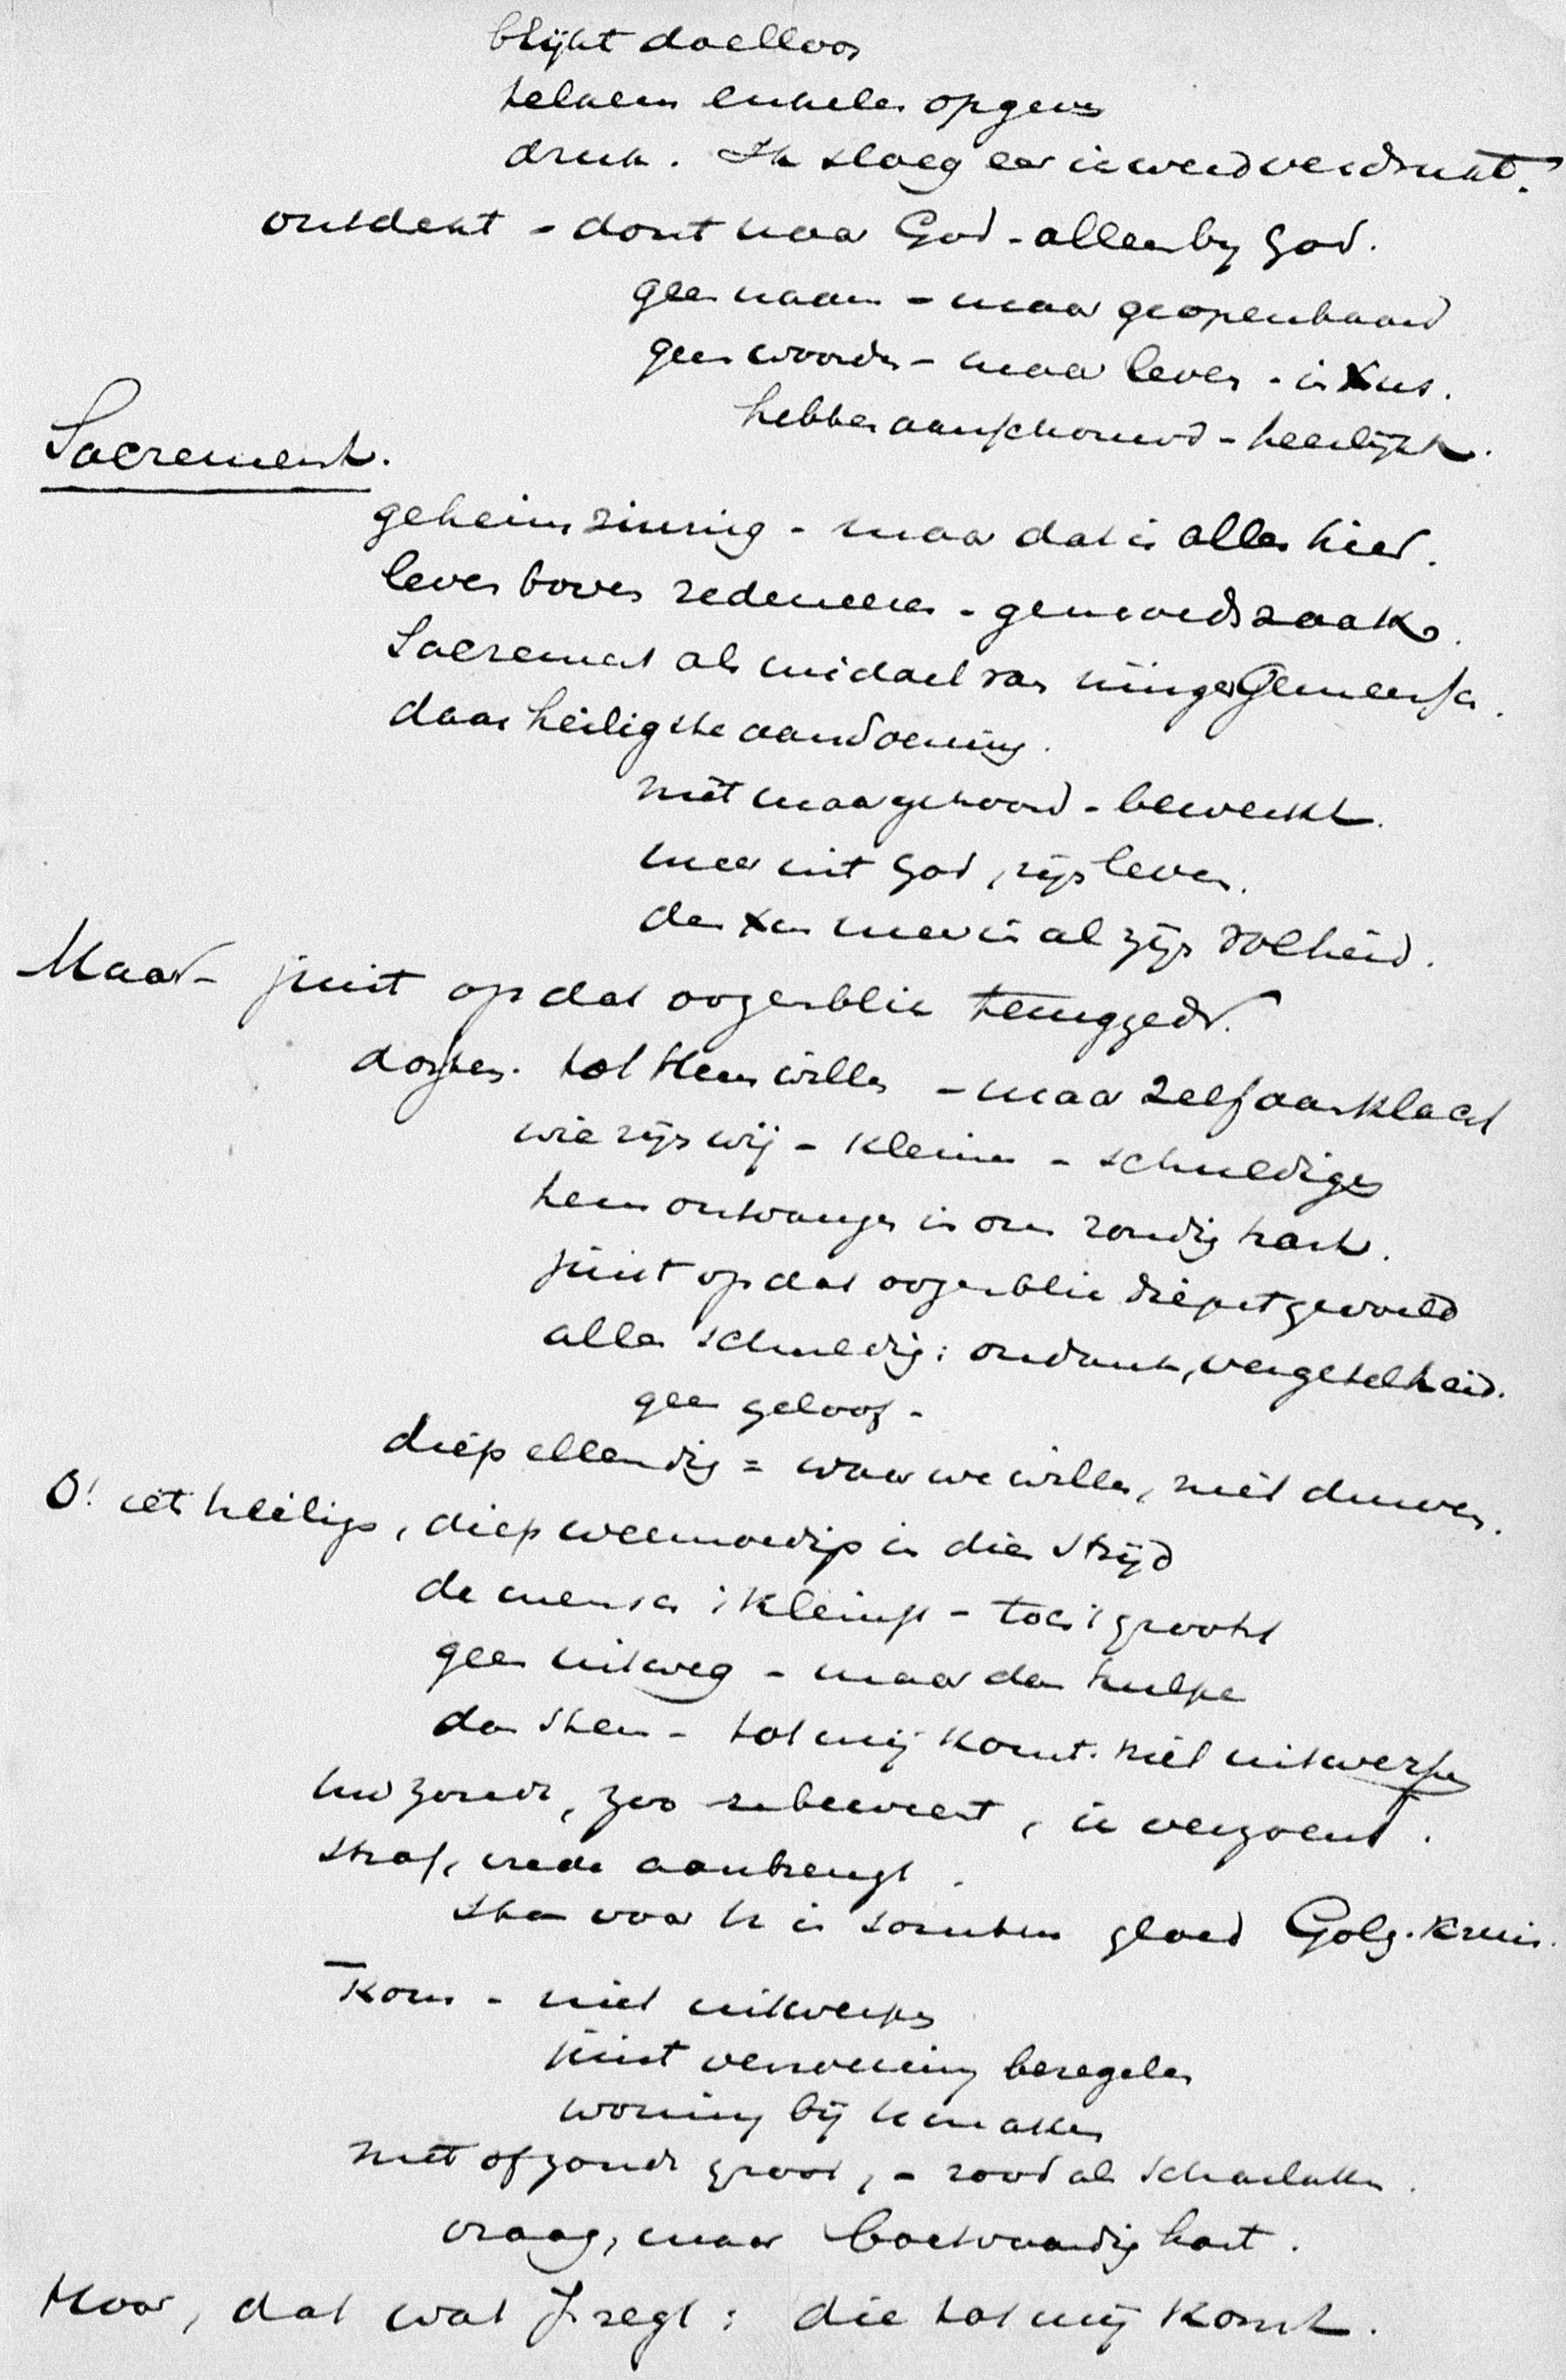 blijkt doelloos
telkens enkelen opgeven
druk. Ik sloeg
ontdekt - dorst naar God - alleen bij God.
geen naam - maar geopenbaard
geen woorden - maar leven - in Xus.
hebben aanschouwd - heerlijkh.
Sacrement.
geheimzinnig - maar dat is alles hier.
leven boven redeneeren - gemoedszaak.
Sacrement als middel van innige Gemeensch.
daar heiligste aandoening.
niet maar gehoord - bewerkt.
meer uit God, zijn leven.
den Xus meer in al zijn volheid.
Maar - juist op dat oogenblik teruggedr.
dorsten. tot Hem willen - maar zelfaanklacht
wie zijn wij - kleinen - schuldigen
hem ontvangen in ons zondig hart.
juist op dat oogenblik diepst gevoeld
allen schuldig: ondank, vergetelheid.
geen geloof -
diep ellendig = waar we willen, niet durven.
O! iets heiligs, diep weemoedigs in dien strijd
de mensch 't kleinst - toch 't grootst
geen uitweg - maar dan hulpe
dan stem - tot mij komt. niet uitwerpen
uw zonde, zoo beweent, is verzoend.
straf, vrede aanbrengt.
voor U in somberen gloed Golg. kruis.
Kom - niet uitwerpen
juist verzoening bezegelen
woning bij U maken
niet of zonde groot, - rood als scharlaken.
vraag, maar boetvaardig hart.
Hoor, dat wat J. zegt: die tot mij komt.